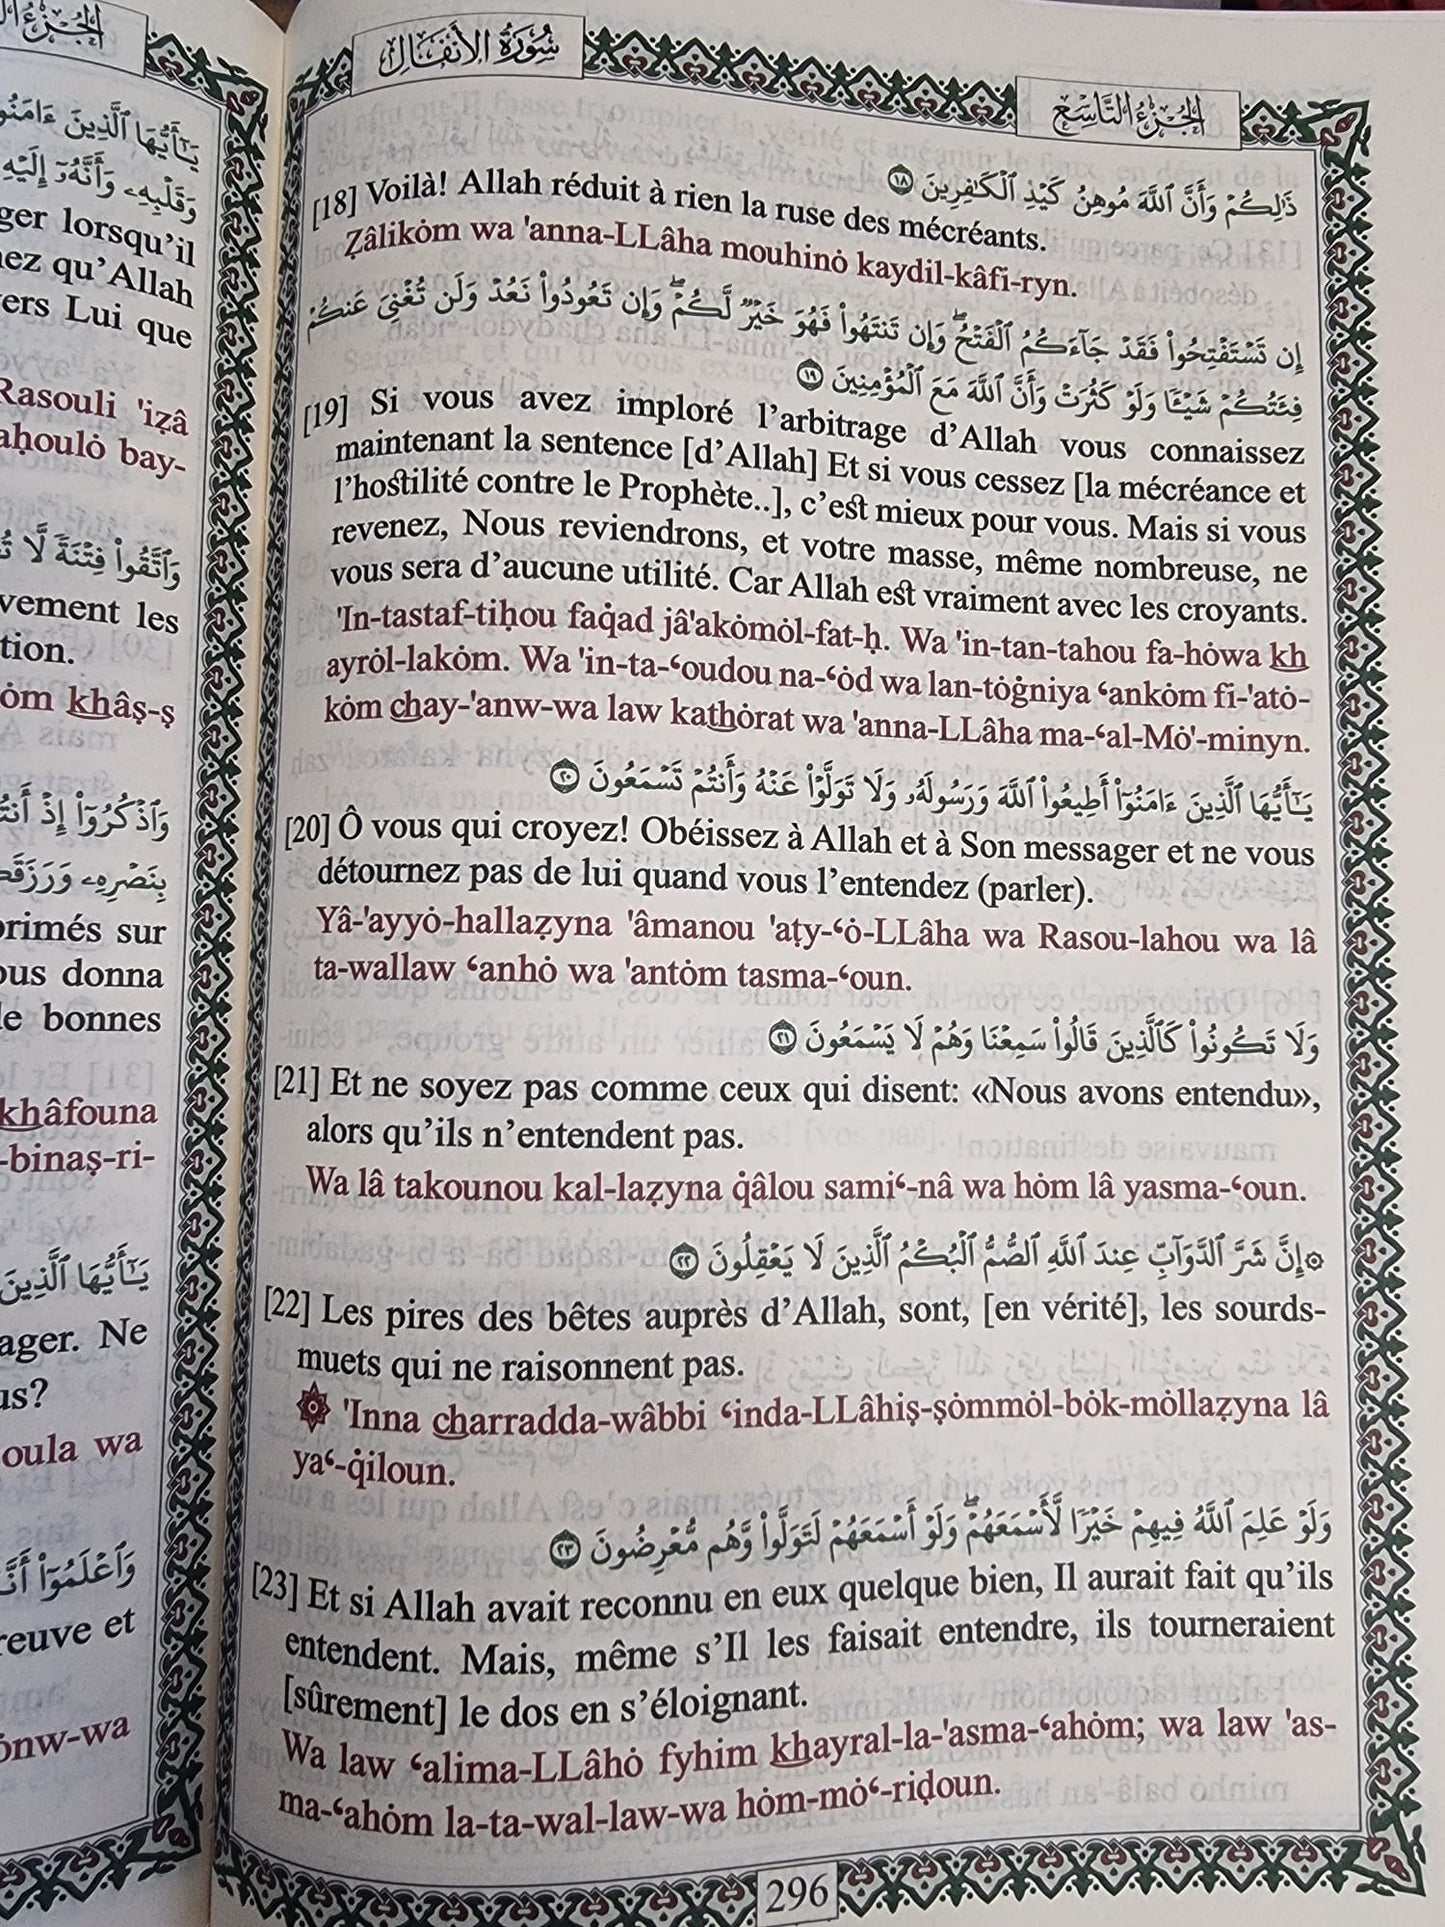 سُورَةُ الأَنفَال
الجُزءُ التَّاسِع
ذَٰلِكُمْ وَأَنَّ ٱللَّهَ مُوهِنُ كَيْدِ ٱلْكَٰفِرِينَ ١٨
[18] Voilà! Allah réduit à rien la ruse des mécréants.
Ẓâlikȯm wa 'anna-LLâha mouhinȯ kaydil-kâfi-ryn.
إِن تَسْتَفْتِحُوا۟ فَقَدْ جَآءَكُمُ ٱلْفَتْحُ ۖ وَإِن تَنتَهُوا۟ فَهُوَ خَيْرٌ لَّكُمْ ۖ وَإِن تَعُودُوا۟ نَعُدْ وَلَن تُغْنِىَ عَنكُمْ
فِئَتُكُمْ شَيْـًٔا وَلَوْ كَثُرَتْ وَأَنَّ ٱللَّهَ مَعَ ٱلْمُؤْمِنِينَ ١٩
[19] Si vous avez imploré l’arbitrage d’Allah vous connaissez
maintenant la sentence [d’Allah] Et si vous cessez [la mécréance et
l’hostilité contre le Prophète..], c’est mieux pour vous. Mais si vous
revenez, Nous reviendrons, et votre masse, même nombreuse, ne
vous sera d’aucune utilité. Car Allah est vraiment avec les croyants.
'In-tastaf-tiḥou faq̇ad jâ'akȯmȯl-fat-ḥ. Wa 'in-tan-tahou fa-hȯwa kh
ayrȯl-lakȯm. Wa 'in-ta-‘oudou na-‘ȯd wa lan-tȯġniya ‘ankȯm fi-'atȯ-
kȯm chay-'anw-wa law kathȯrat wa 'anna-LLâha ma-‘al-Mȯ'-minyn.
يَٰٓأَيُّهَا ٱلَّذِينَ ءَامَنُوٓا۟ أَطِيعُوا۟ ٱللَّهَ وَرَسُولَهُۥ وَلَا تَوَلَّوْا۟ عَنْهُ وَأَنتُمْ تَسْمَعُونَ ٢٠
[20] Ô vous qui croyez! Obéissez à Allah et à Son messager et ne vous
détournez pas de lui quand vous l’entendez (parler).
Yâ-'ayyȯ-hallaẓyna 'âmanou 'aṭy-‘ȯ-LLâha wa Rasou-lahou wa lâ
ta-wallaw ‘anhȯ wa 'antȯm tasma-‘oun.
وَلَا تَكُونُوا۟ كَٱلَّذِينَ قَالُوا۟ سَمِعْنَا وَهُمْ لَا يَسْمَعُونَ ٢١
[21] Et ne soyez pas comme ceux qui disent: «Nous avons entendu»,
alors qu’ils n’entendent pas.
Wa lâ takounou kal-laẓyna q̇âlou sami‘-nâ wa hȯm lâ yasma-‘oun.
۞ إِنَّ شَرَّ ٱلدَّوَآبِّ عِندَ ٱللَّهِ ٱلصُّمُّ ٱلْبُكْمُ ٱلَّذِينَ لَا يَعْقِلُونَ ٢٢
[22] Les pires des bêtes auprès d’Allah, sont, [en vérité], les sourds-
muets qui ne raisonnent pas.
۞ 'Inna charradda-wâbbi ‘inda-LLâhiṣ-ṣȯmmȯl-bȯk-mȯllaẓyna lâ
ya‘-q̇iloun.
وَلَوْ عَلِمَ ٱللَّهُ فِيهِمْ خَيْرًا لَّأَسْمَعَهُمْ ۖ وَلَوْ أَسْمَعَهُمْ لَتَوَلَّوا۟ وَّهُم مُّعْرِضُونَ ٢٣
[23] Et si Allah avait reconnu en eux quelque bien, Il aurait fait qu’ils
entendent. Mais, même s’Il les faisait entendre, ils tourneraient
[sûrement] le dos en s’éloignant.
Wa law ‘alima-LLâhȯ fyhim khayral-la-'asma-‘ahȯm; wa law 'as-
ma-‘ahȯm la-ta-wal-law-wa hȯm-mȯ‘-riḍoun.
296
يَٰٓأَيُّهَا ٱلَّذِينَ ءَامَنُو
وَقَلْبِهِۦ وَأَنَّهُۥٓ إِلَيْهِ
ger lorsqu’il
ez qu’Allah
ers Lui que
Rasouli 'iẓâ
aḥoulȯ bay-
وَٱتَّقُوا۟ فِتْنَةً لَّا تُ
vement les
tion.
ȯm khâṣ-ṣ
وَٱذْكُرُوٓا۟ إِذْ أَنتُ
بِنَصْرِهِۦ وَرَزَقَ
primés sur
ous donna
de bonnes
khâfouna
-binaṣ-ri-
يَٰٓأَيُّهَا ٱلَّذِينَ
ager. Ne
us?
oula wa
وَٱعْلَمُوٓا۟ أَنَّ
reuve et
ȯnw-wa